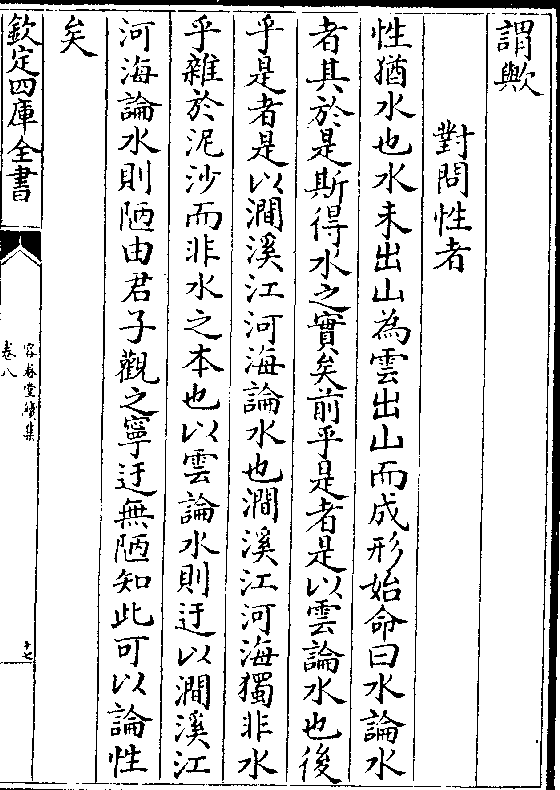 謂歟
對問性者
性猶水也水未出山為雲出山而成形始命曰水論水
者其於是斯得水之實矣前乎是者是以雲論水也後
乎是者是以澗溪江河海論水也澗溪江河海獨非水
乎雜於泥沙而非水之本也以雲論水則迂以澗溪江
河海論水則陋由君子觀之寧迂無陋知此可以論性
矣
欽定四庫全書
容春堂續集
卷八
十七